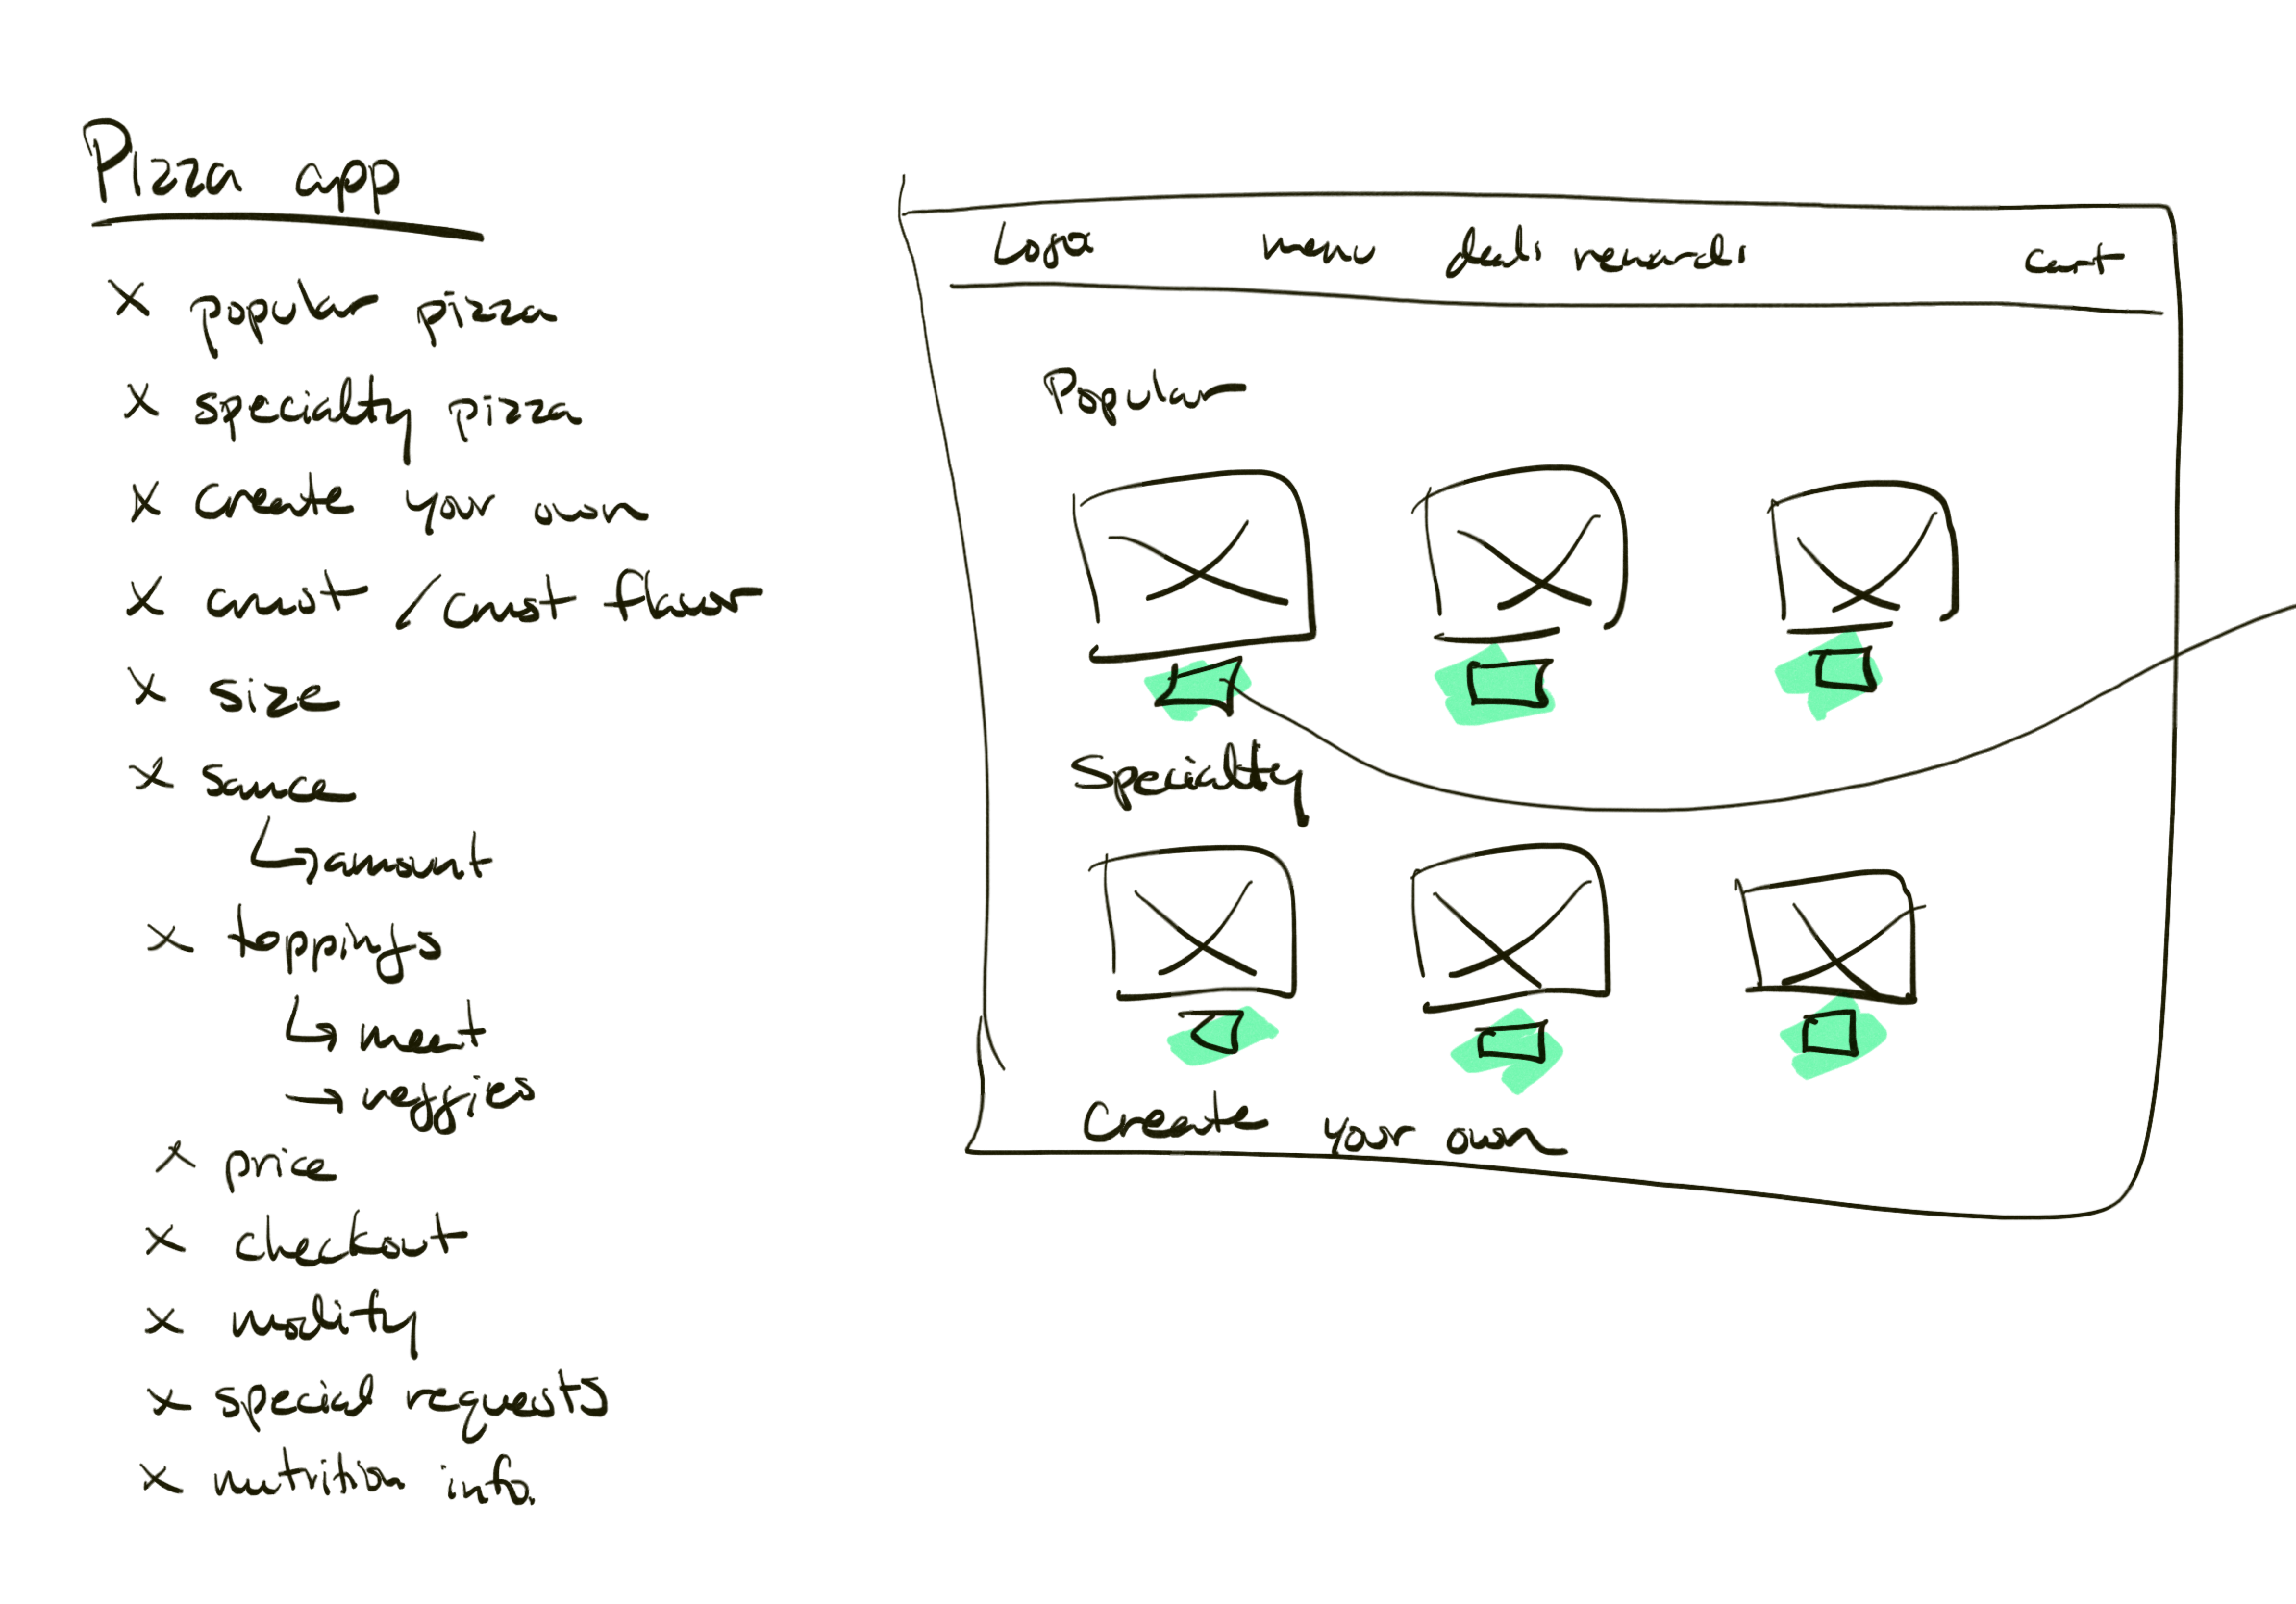 Pizza app
x popular pizza
x specialty pizza
x create your own
x crust / crust flavor
x size
x sauce
↳ amount
x toppings
↳ meat
→ veggies
x price
x checkout
x modify
x special requests
x nutrition info.
Logo menu deals rewards cart
Popular
Specialty
Create your own